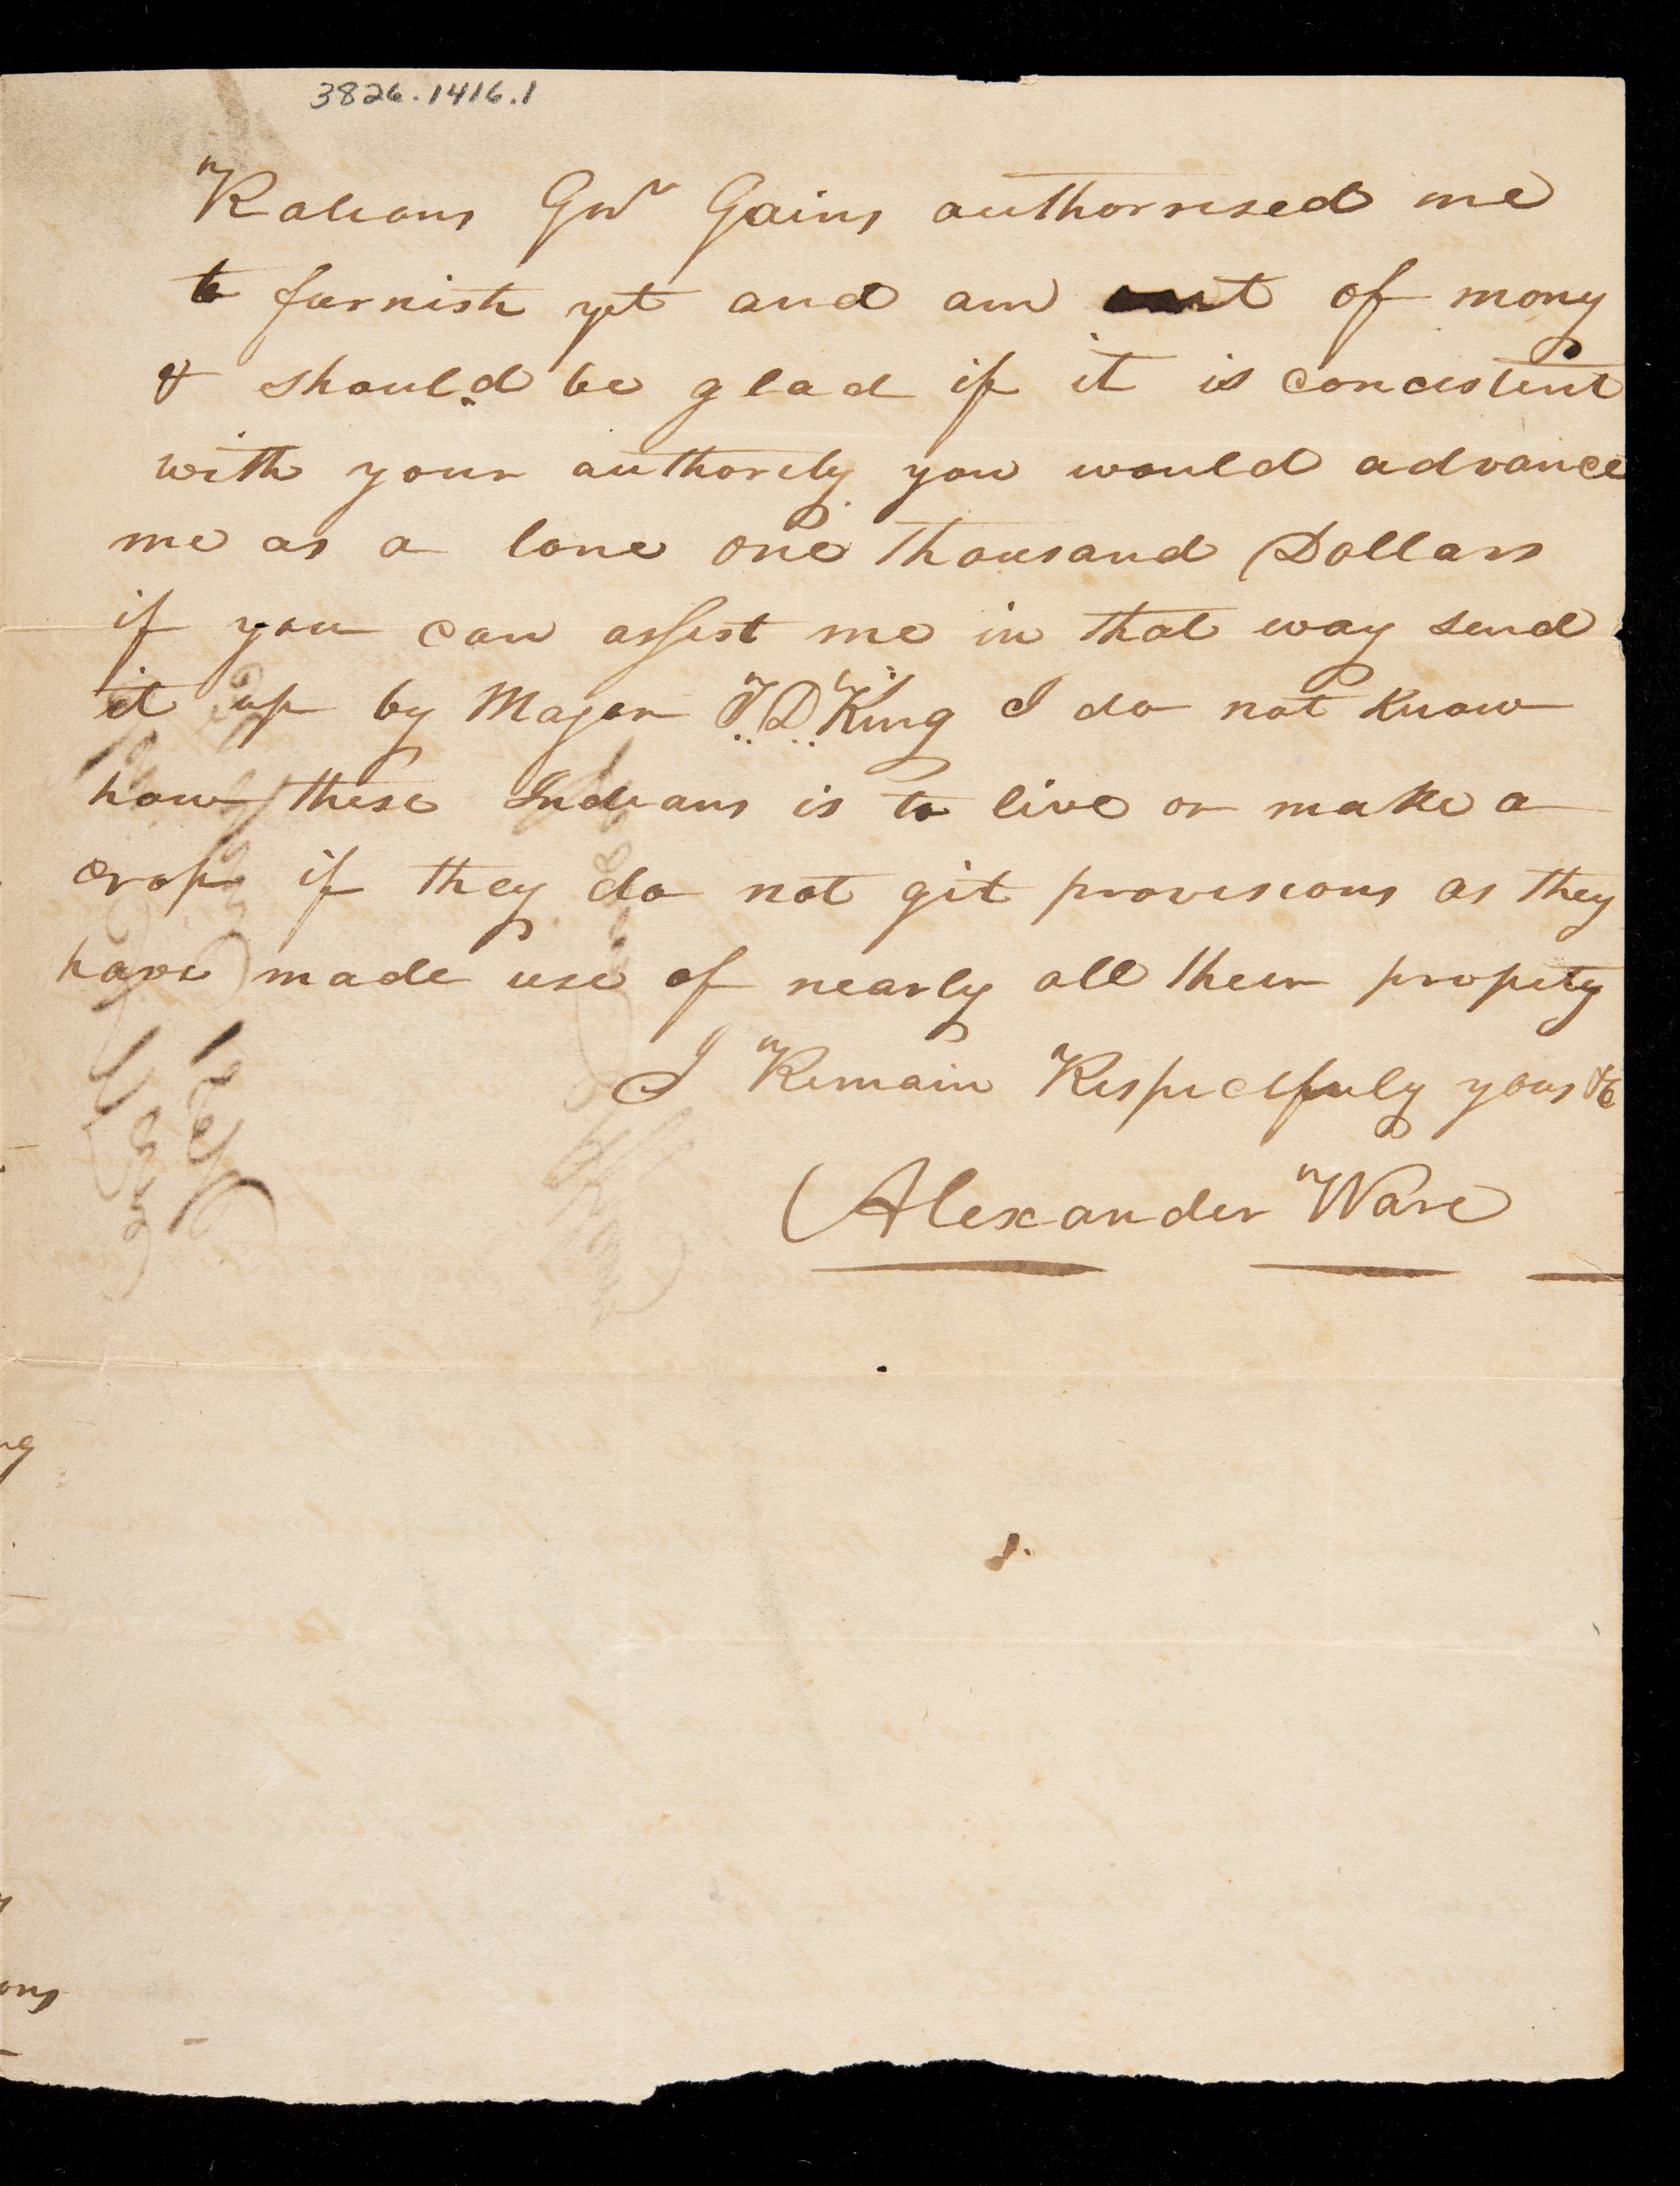 3826.1416.1
Rations Genl Gains authorrised me
to furnish yet and am out of mony
& should be glad if it is concistent
with your authority you would advance
me as a lone one Thousand Dollars
if you can assist me in that way send
it up by Major J. D. King I do not know
how these Indians is to live or make a
crop if they do not git provisions as they
have made use of nearly all their propety
I Remain Respectfuly yous &c
Alexander Ware